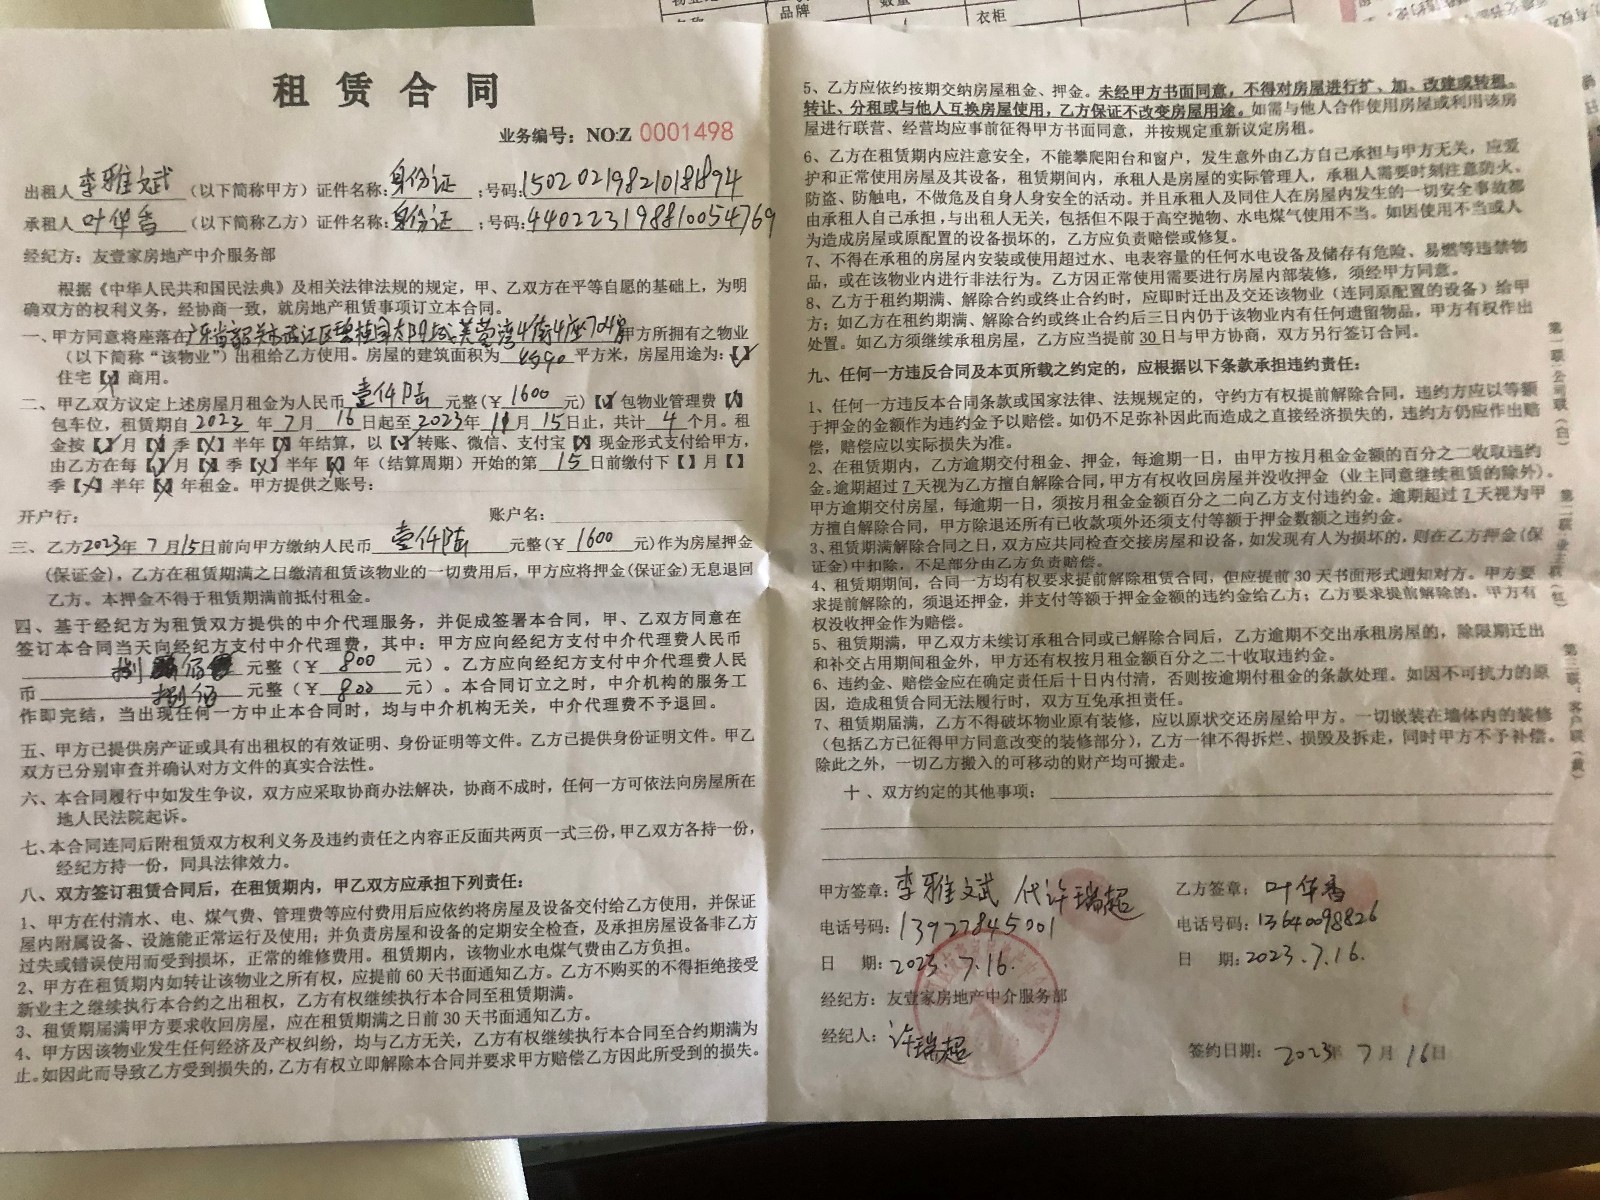 品牌
数量
衣柜
租赁合同
业务编号：NO:Z 0001498
出租人李雅文武（以下简称甲方）证件名称：身份证；号码：150202198210181894
承租人叶华香（以下简称乙方）证件名称：身份证；号码：440223198810054769
经纪方：友壹家房地产中介服务部
根据《中华人民共和国民法典》及相关法律法规的规定，甲、乙双方在平等自愿的基础上，为明
确双方的权利义务，经协商一致，就房地产租赁事项订立本合同。
一、甲方同意将座落在广东省韶关市武江区碧桂园太阳城芙蓉湾4街4座704房甲方所拥有之物业
（以下简称“该物业”）出租给乙方使用。房屋的建筑面积为 平方米，房屋用途为：【✓】
住宅【】商用。
二、甲乙双方议定上述房屋月租金为人民币壹仟陆元整(￥1600元)【】包物业管理费【】
包车位，租赁期自2023年7月16日起至2023年11月15日止，共计4个月。租
金按【】月【】季【】半年【】年结算，以【✓】转账、微信、支付宝【】现金形式支付给甲方，
由乙方在每【】月【】季【】半年【】年（结算周期）开始的第15日前缴付下【】月【】
季【】半年【】年租金。甲方提供之账号：
开户行： 账户名：
三、乙方2023年7月15日前向甲方缴纳人民币壹仟陆元整(￥1600元)作为房屋押金
(保证金)，乙方在租赁期满之日缴清租赁该物业的一切费用后，甲方应将押金(保证金)无息退回
乙方。本押金不得于租赁期满前抵付租金。
四、基于经纪方为租赁双方提供的中介代理服务，并促成签署本合同，甲、乙双方同意在
签订本合同当天向经纪方支付中介代理费，其中：甲方应向经纪方支付中介代理费人民币
捌佰元整（￥800元）。乙方应向经纪方支付中介代理费人民
币捌佰元整（￥800元）。本合同订立之时，中介机构的服务工
作即完结，当出现任何一方中止本合同时，均与中介机构无关，中介代理费不予退回。
五、甲方已提供房产证或具有出租权的有效证明、身份证明等文件。乙方已提供身份证明文件。甲乙
双方已分别审查并确认对方文件的真实合法性。
六、本合同履行中如发生争议，双方应采取协商办法解决，协商不成时，任何一方可依法向房屋所在
地人民法院起诉。
七、本合同连同后附租赁双方权利义务及违约责任之内容正反面共两页一式三份，甲乙双方各持一份，
经纪方持一份，同具法律效力。
八、双方签订租赁合同后，在租赁期内，甲乙双方应承担下列责任：
1、甲方在付清水、电、煤气费、管理费等应付费用后应依约将房屋及设备交付给乙方使用，并保证
屋内附属设备、设施能正常运行及使用；并负责房屋和设备的定期安全检查，及承担房屋设备非乙方
过失或错误使用而受到损坏，正常的维修费用。租赁期内，该物业水电煤气费由乙方负担。
2、甲方在租赁期内如转让该物业之所有权，应提前60天书面通知乙方。乙方不购买的不得拒绝接受
新业主之继续执行本合约之出租权，乙方有权继续执行本合同至租赁期满。
3、租赁期届满甲方要求收回房屋，应在租赁期满之日前30天书面通知乙方。
4、甲方因该物业发生任何经济及产权纠纷，均与乙方无关，乙方有权继续执行本合同至合约期满为
止。如因此而导致乙方受到损失的，乙方有权立即解除本合同并要求甲方赔偿乙方因此所受到的损失。
5、乙方应依约按期交纳房屋租金、押金。未经甲方书面同意，不得对房屋进行扩、加、改建或转租、
转让、分租或与他人互换房屋使用，乙方保证不改变房屋用途。如需与他人合作使用房屋或利用该房
屋进行联营、经营均应事前征得甲方书面同意，并按规定重新议定房租。
6、乙方在租赁期内应注意安全，不能攀爬阳台和窗户，发生意外由乙方自己承担与甲方无关，应爱
护和正常使用房屋及其设备，租赁期间内，承租人是房屋的实际管理人，承租人需要时刻注意防火、
防盗、防触电，不做危及自身人身安全的活动。并且承租人及同住人在房屋内发生的一切安全事故都
由承租人自己承担，与出租人无关，包括但不限于高空抛物、水电煤气使用不当。如因使用不当或人
为造成房屋或原配置的设备损坏的，乙方应负责赔偿或修复。
7、不得在承租的房屋内安装或使用超过水、电表容量的任何水电设备及储存有危险、易燃等违禁物
品，或在该物业内进行非法行为。乙方因正常使用需要进行房屋内部装修，须经甲方同意。
8、乙方于租约期满、解除合约或终止合约时，应即时迁出及交还该物业（连同原配置的设备）给甲
方；如乙方在租约期满、解除合约或终止合约后三日内仍于该物业内有任何遗留物品，甲方有权作出
处置。如乙方须继续承租房屋，乙方应当提前30日与甲方协商，双方另行签订合同。
九、任何一方违反合同及本页所载之约定的，应根据以下条款承担违约责任：
1、任何一方违反本合同条款或国家法律、法规规定的，守约方有权提前解除合同，违约方应以等额
于押金的金额作为违约金予以赔偿。如仍不足弥补因此而造成之直接经济损失的，违约方仍应作出赔
偿，赔偿应以实际损失为准。
2、在租赁期内，乙方逾期交付租金、押金，每逾期一日，由甲方按月租金金额的百分之二收取违约
金。逾期超过7天视为乙方擅自解除合同，甲方有权收回房屋并没收押金（业主同意继续租赁的除外）。
甲方逾期交付房屋，每逾期一日，须按月租金金额百分之二向乙方支付违约金。逾期超过7天视为甲
方擅自解除合同，甲方除退还所有已收款项外还须支付等额于押金数额之违约金。
3、租赁期满解除合同之日，双方应共同检查交接房屋和设备，如发现有人为损坏的，则在乙方押金(保
证金)中扣除，不足部分由乙方负责赔偿。
4、租赁期期间，合同一方均有权要求提前解除租赁合同，但应提前30天书面形式通知对方。甲方要
求提前解除的，须退还押金，并支付等额于押金金额的违约金给乙方；乙方要求提前解除的，甲方有
权没收押金作为赔偿。
5、租赁期满，甲乙双方未续订承租合同或已解除合同后，乙方逾期不交出承租房屋的，除限期迁出
和补交占用期间租金外，甲方还有权按月租金额百分之二十收取违约金。
6、违约金、赔偿金应在确定责任后十日内付清，否则按逾期付租金的条款处理。如因不可抗力的原
因，造成租赁合同无法履行时，双方互免承担责任。
7、租赁期届满，乙方不得破坏物业原有装修，应以原状交还房屋给甲方。一切嵌装在墙体内的装修
（包括乙方已征得甲方同意改变的装修部分），乙方一律不得拆烂、损毁及拆走，同时甲方不予补偿。
除此之外，一切乙方搬入的可移动的财产均可搬走。
十、双方约定的其他事项：
甲方签章：李雅文武 代许瑞超 乙方签章：叶华香
电话号码：13927845001 电话号码：13640098826
日 期：2023.7.16. 日 期：2023.7.16.
经纪方：友壹家房地产中介服务部
经纪人：许瑞超
签约日期：2023年7月16日
第一联：公司联（白）
第二联：业主联（红）
第三联：客户联（黄）